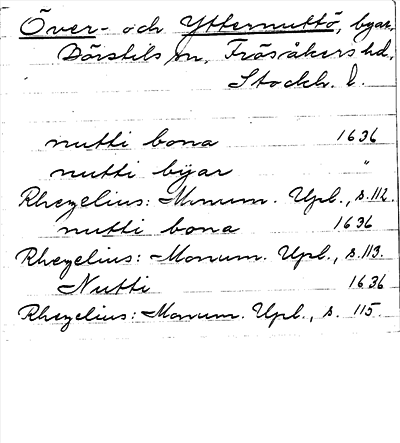 Över- och Ytternuttö, byar,
Börstils sn, Frösåkers hd,
Stockh. l.
nutti bona 1636
nutti byar "
Rhezelius: Monum. Upl., s. 112.
nutti bona 1636
Rhezelius: Monum. Upl., s. 113.
Nutti 1636
Rhezelius: Monum. Upl., s. 115.